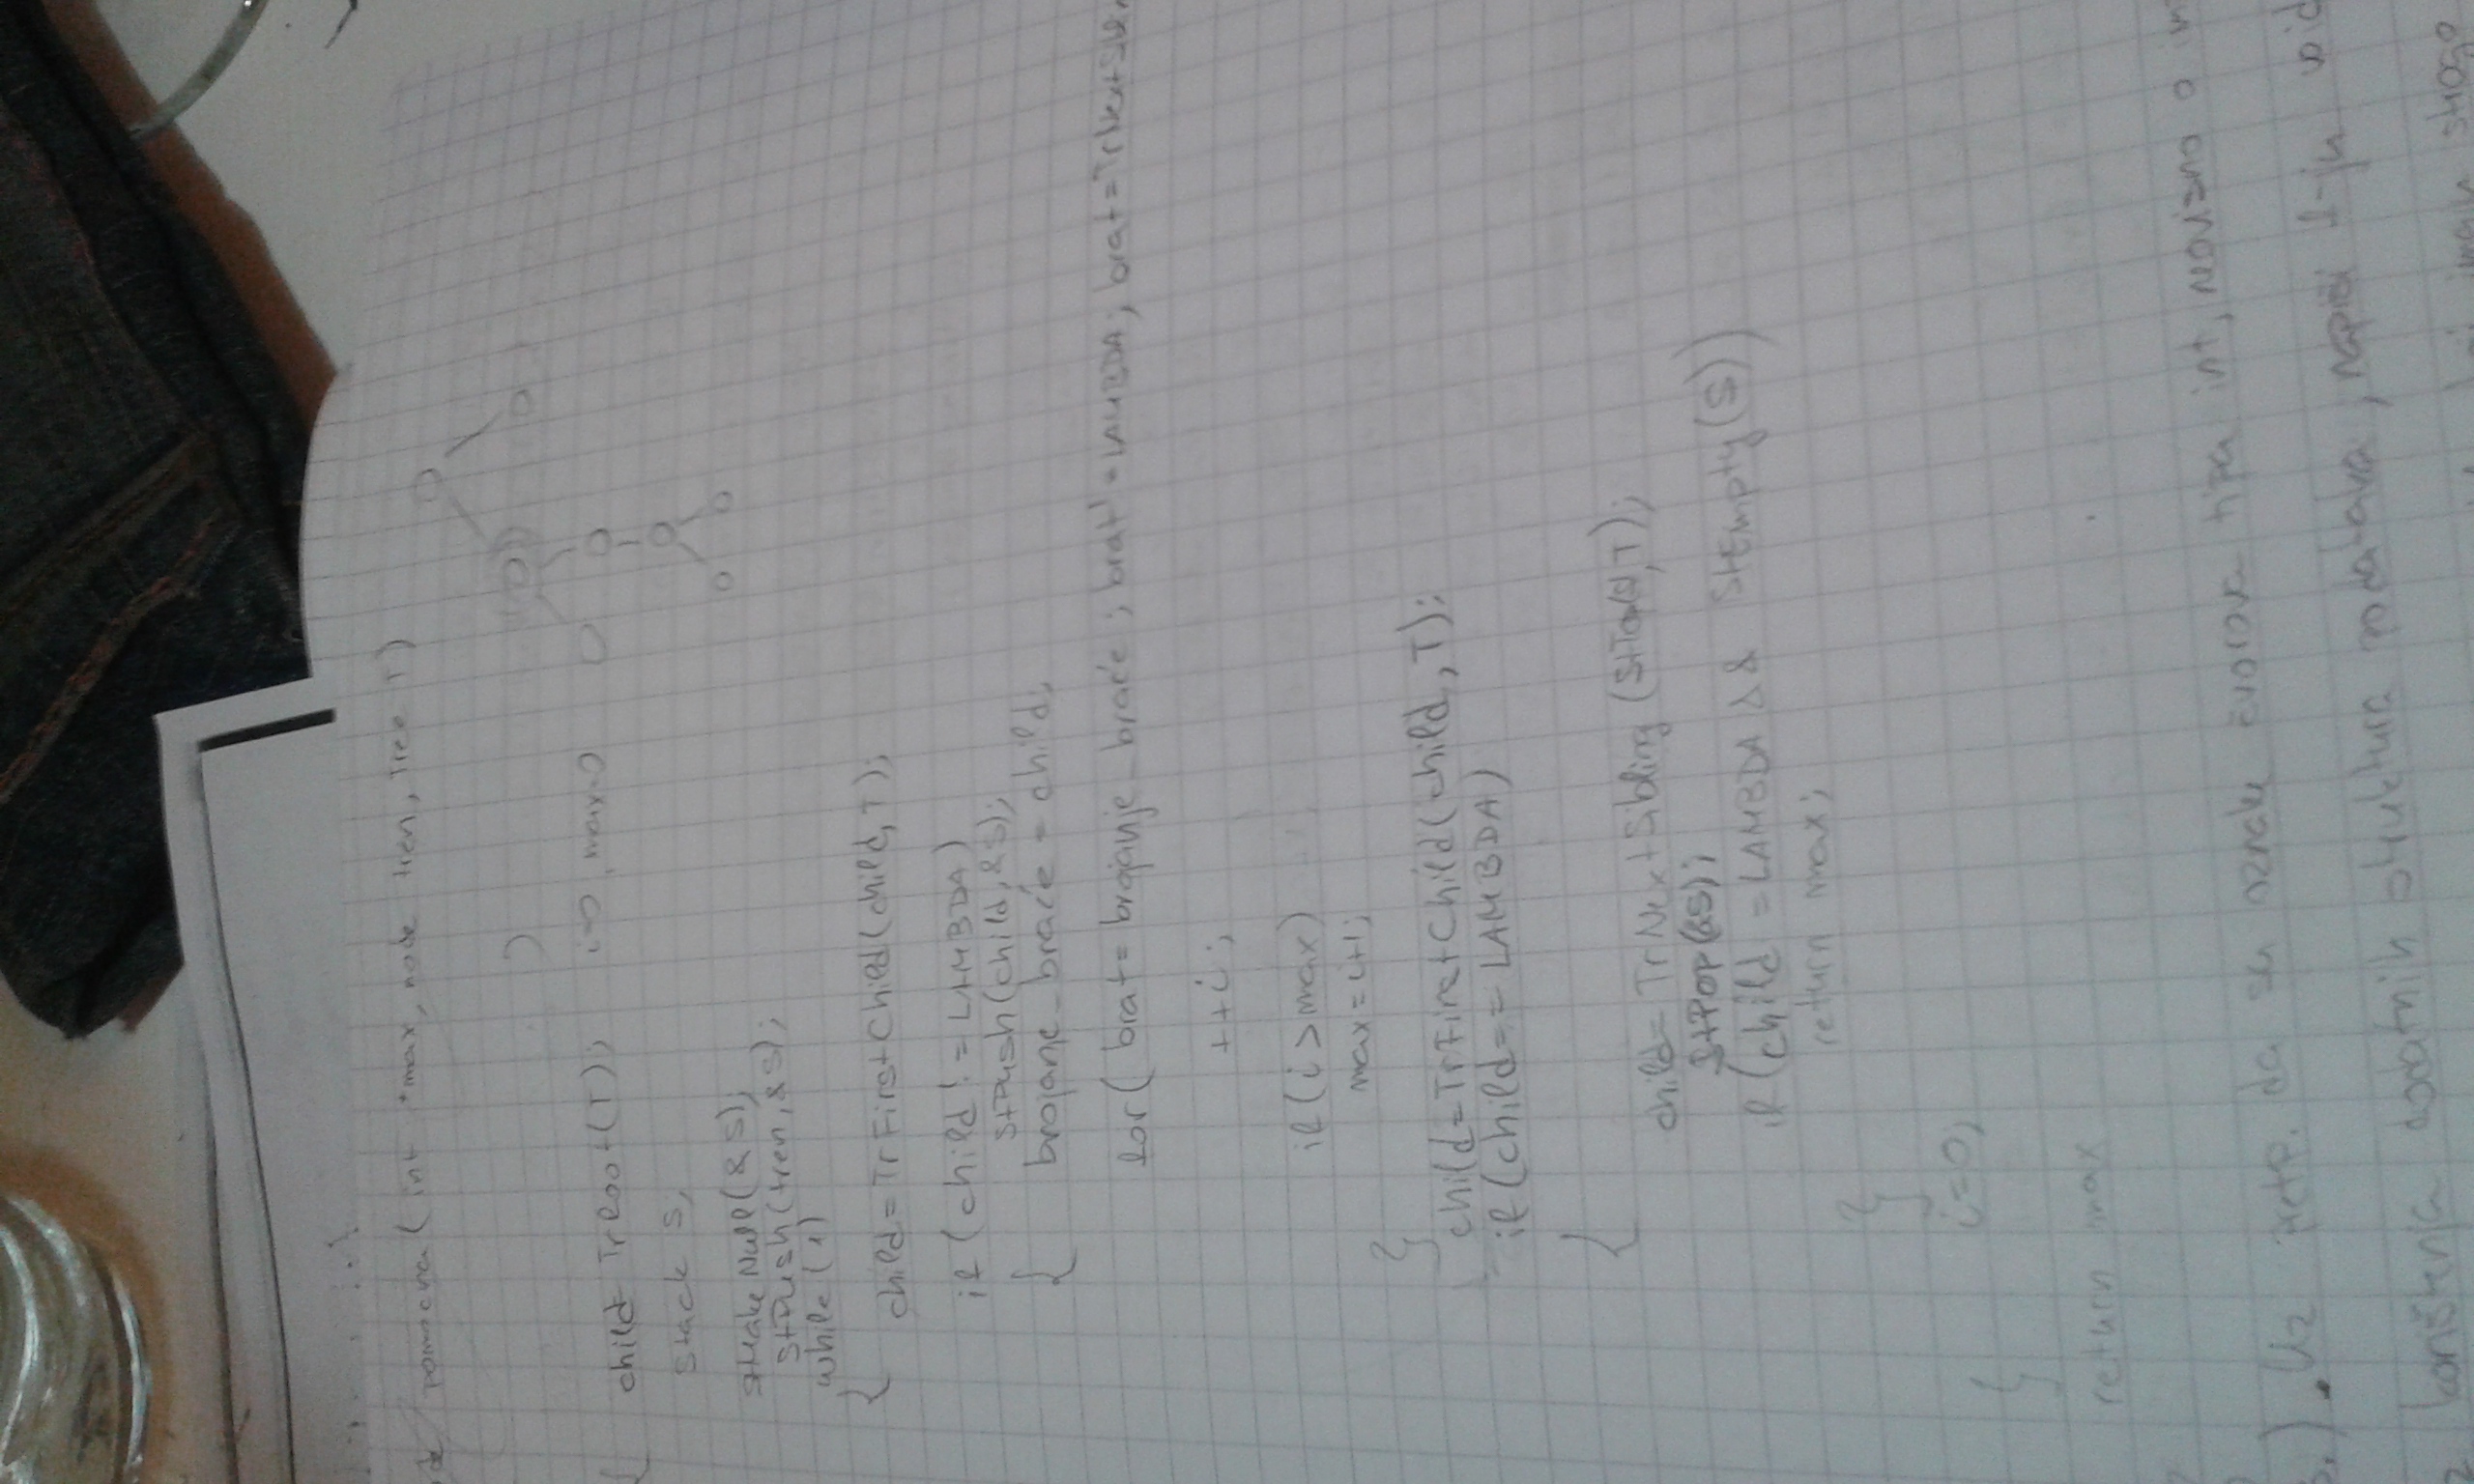 pomocna (int *max, node tren, Tree T)
)
{ child = TrRoot(T); i=0, max=0
stack S;
StMakeNull(&S);
StPush(tren,&S);
while(1)
{ child=TrFirstChild(child,T);
if (child != LAMBDA)
StPush(child,&S);
{ brojanje_braće = child;
for( brat= brojanje_braće; brat!=LAMBDA; brat=
++i;
if(i>max)
max=i+1;
}
child=TrFirstChild(child,T);
if(child== LAMBDA)
{
child=TrNextSibling(StTop(S),T);
StPop(&S);
if(child =LAMBDA && StEmpty(S))
return max;
}
i=0;
}
return max
2 . da su oznake čvorova tipa int, neovisno o
korištenja dodatnih struktura podataka, napiši f-ju void
imaju strogo